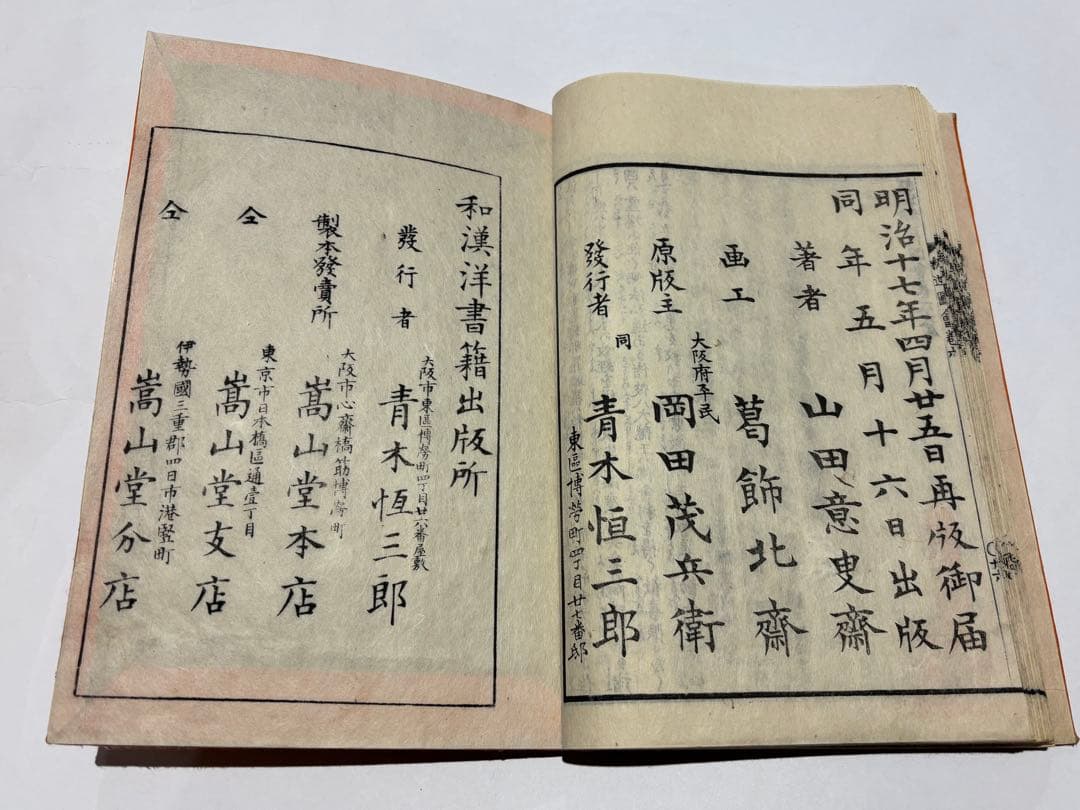 明治十七年四月廿五日再版御届
同年五月十六日出版
著者 山田意叟齋
画工 葛飾北齋
大阪府平民
原版主 岡田茂兵衛
同
發行者 青木恒三郎
東區博勞町四丁目廿七番邸
和漢洋書籍出版所
大阪市東區博勞町四丁目廿六番屋敷
發行者 青木恆三郎
大阪市心齋橋筋博勞町
製本發賣所 嵩山堂本店
東京市日本橋區通壹丁目
仝 嵩山堂支店
伊勢國三重郡四日市港竪町
仝 嵩山堂分店